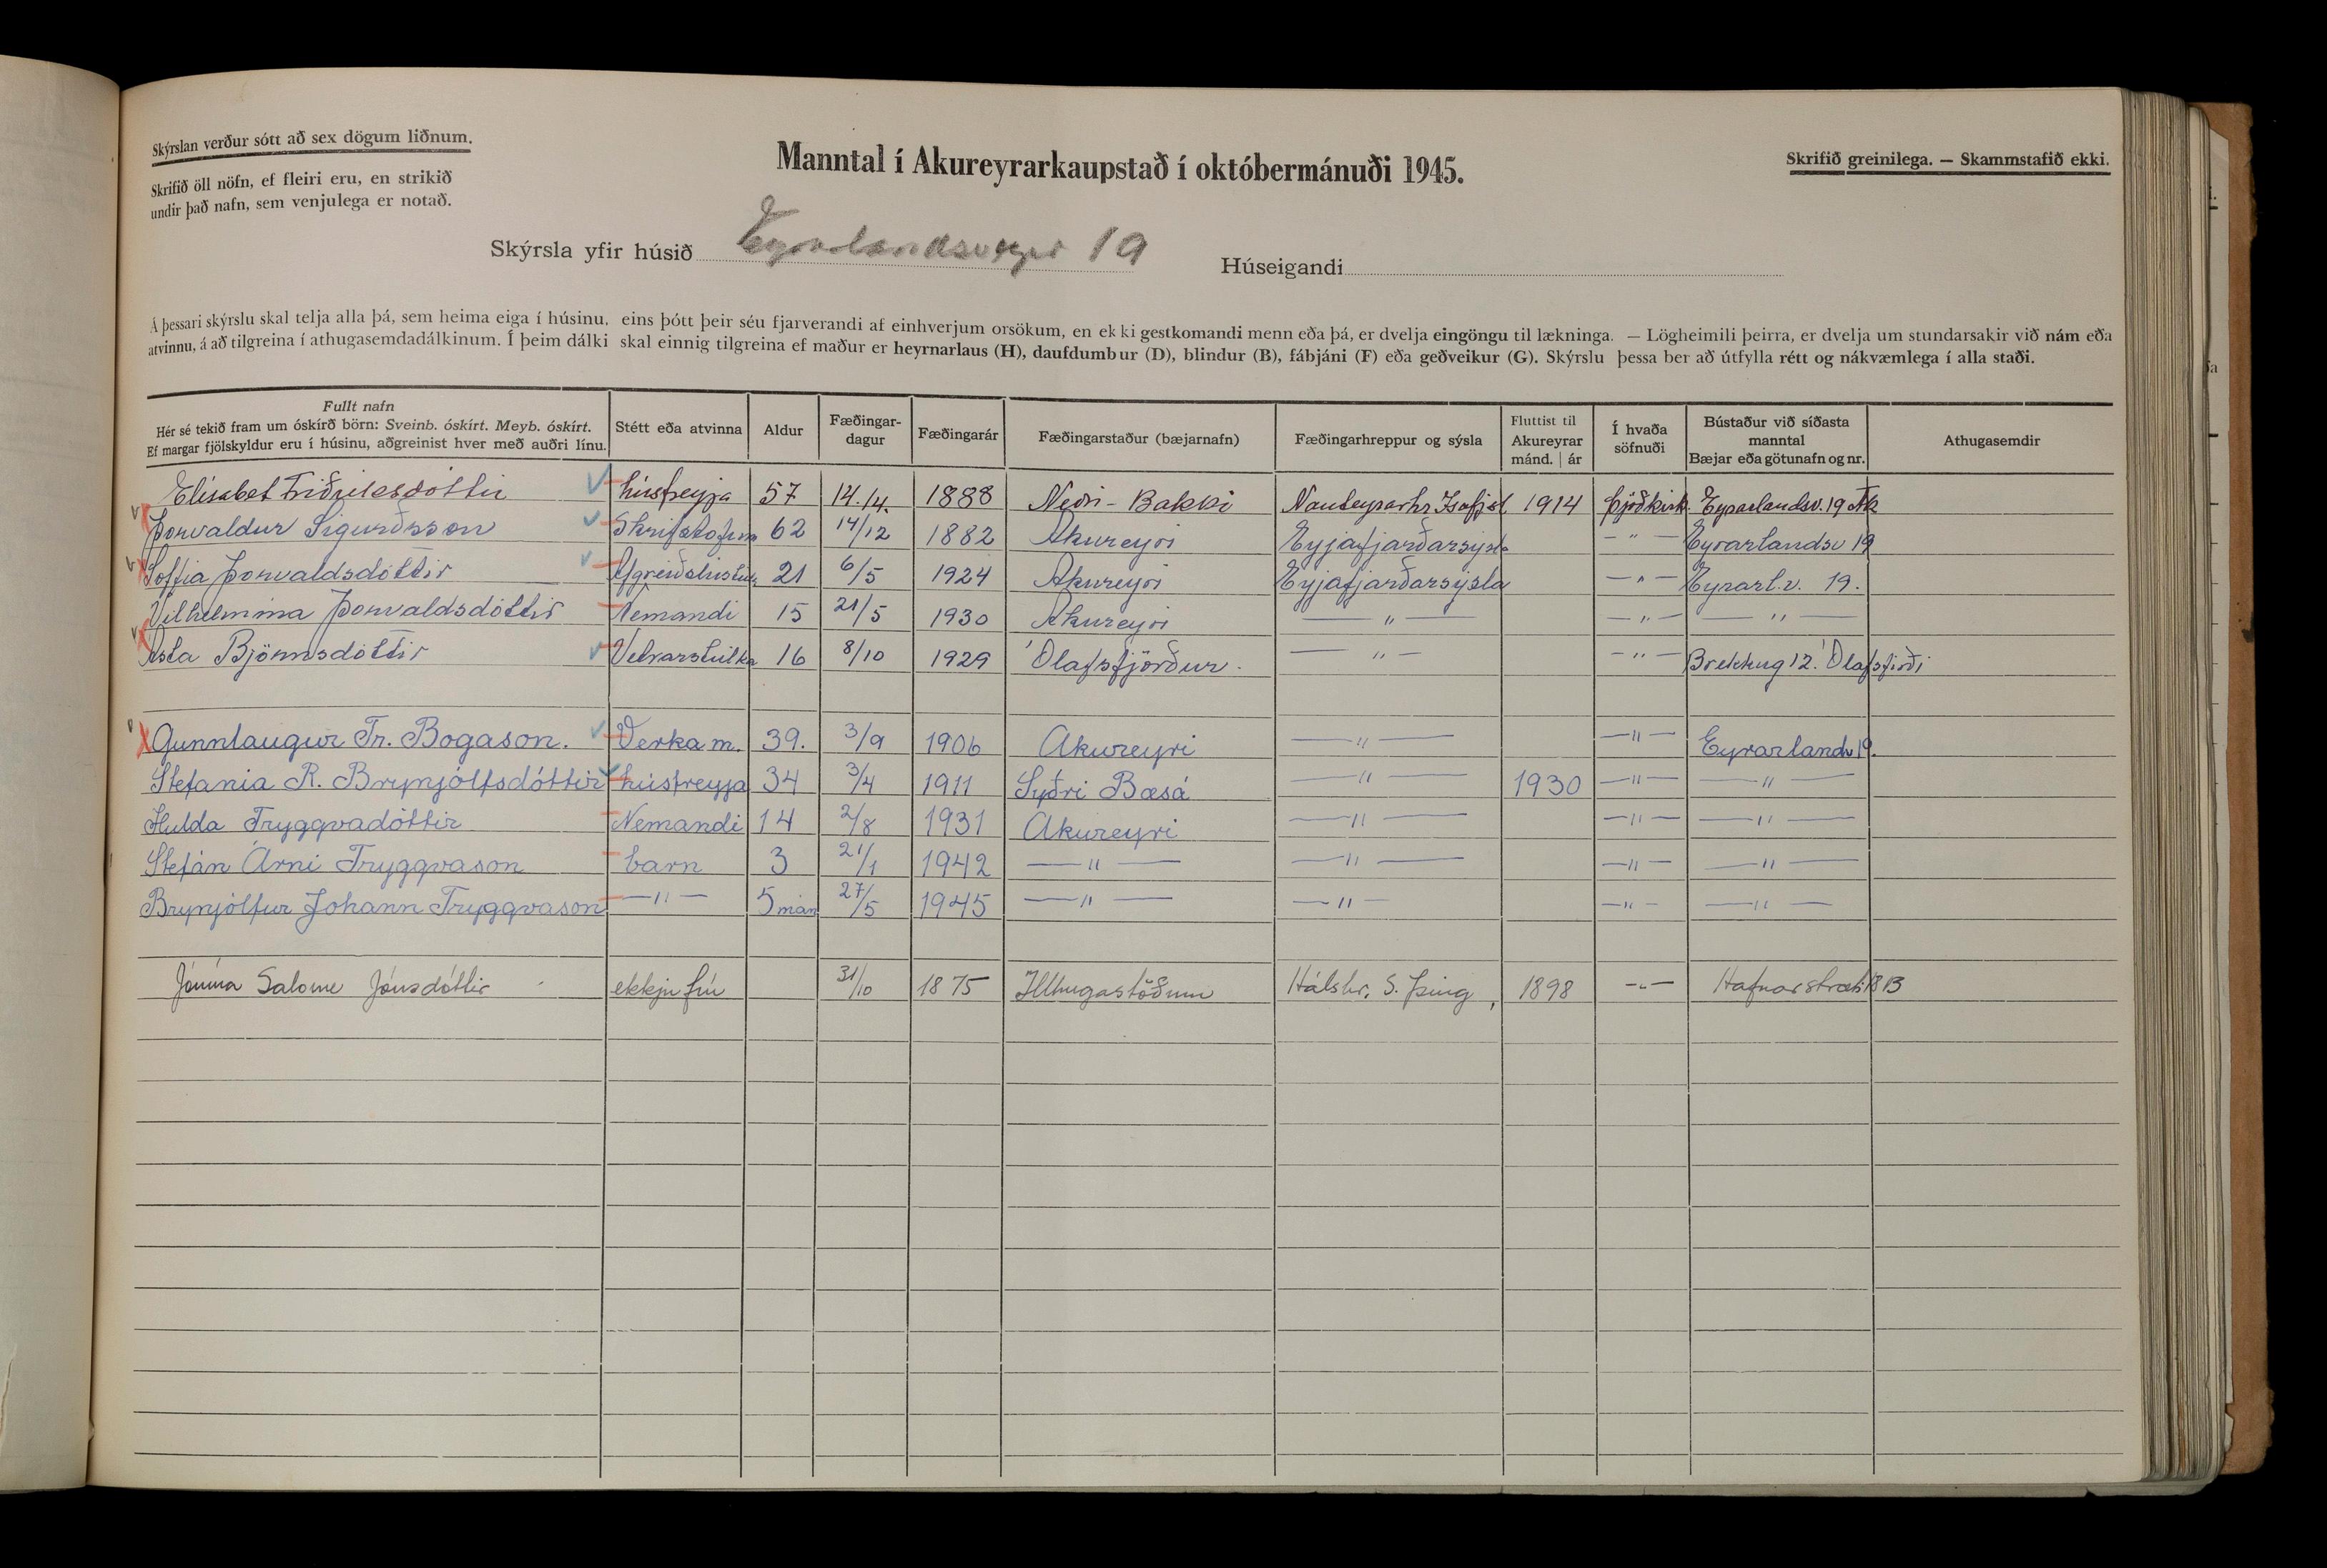 Skýrslan verður sótt að sex dögum liðnum.
Skrifið öll nöfn, ef fleiri eru, en strikið
undir það nafn, sem venjulega er notað.
Manntal í Akureyrarkaupstað í októbermánuði 1945.
Skrifið greinilega. — Skammstafið ekki.
Skýrsla yfir húsið Eyrarlandsvegur 19
Húseigandi
Á þessari skýrslu skal telja alla þá, sem heima eiga í húsinu, eins þótt þeir séu fjarverandi af einhverjum orsökum, en ekki gestkomandi menn eða þá, er dvelja eingöngu til lækninga. — Lögheimili þeirra, er dvelja um stundarsakir við nám eða
atvinnu, á að tilgreina í athugasemdadálkinum. Í þeim dálki skal einnig tilgreina ef maður er heyrnarlaus (H), daufdumbur (D), blindur (B), fábjáni (F) eða geðveikur (G). Skýrslu þessa ber að útfylla rétt og nákvæmlega í alla staði.
Fullt nafn
Hér sé tekið fram um óskírð börn: Sveinb. óskírt. Meyb. óskírt.
Ef margar fjölskyldur eru í húsinu, aðgreinist hver með auðri línu.
Stétt eða atvinna
Aldur
Fæðingar-
dagur
Fæðingarár
Fæðingarstaður (bæjarnafn)
Fæðingarhreppur og sýsla
Fluttist til
Akureyrar
mánd. | ár
Í hvaða
söfnuði
Bústaður við síðasta
manntal
Bæjar eða götunafn og nr.
Athugasemdir
Elísabet Friðriksdóttir húsfreyja 57 14./4. 1888 Neðri-Bakki Nauteyrarhr Ísafjs 1914 Þjóðkirk. Eyrarlandsv. 19 Ak
Þorvaldur Sigurðsson 62 14/12 1882 Akureyri Eyjafjarðarsýsla —"— Eyrarlandsv 19
Soffia Þorvaldsdóttir 21 6/5 1924 Akureyri Eyjafjarðarsýsla —"— Eyrarl.v. 19.
Vilhelmina Þorvaldsdóttir Nemandi 15 21/5 1930 Akureyri —"— —"— —"—
Ásta Björnsdóttir Vetrarstúlka 16 8/10 1929 Ólafsfjörður. —"— —"— Brekkug 12. Ólafsfirði
Gunnlaugur Tr. Bogason. Verkam. 39. 3/9 1906 Akureyri —"— —"— Eyrarlandv 19.
Stefania R. Brynjólfsdóttir húsfreyja 34 3/4 1911 Syðri Bæsá —"— 1930 —"— —"—
Hulda Tryggvadóttir Nemandi 14 2/8 1931 Akureyri —"— —"— —"—
Stefán Árni Tryggvason barn 3 21/1 1942 —"— —"— —"— —"—
Brynjólfur Jóhann Tryggvason —"— 5 mán 27/5 1945 —"— —"— —"— —"—
Jónína Salome Jónsdóttir ekkjufrú 31/10 1875 Illhugastöðum Hálshr. S. Þing, 1898 —"— Hafnarstræti 18 B